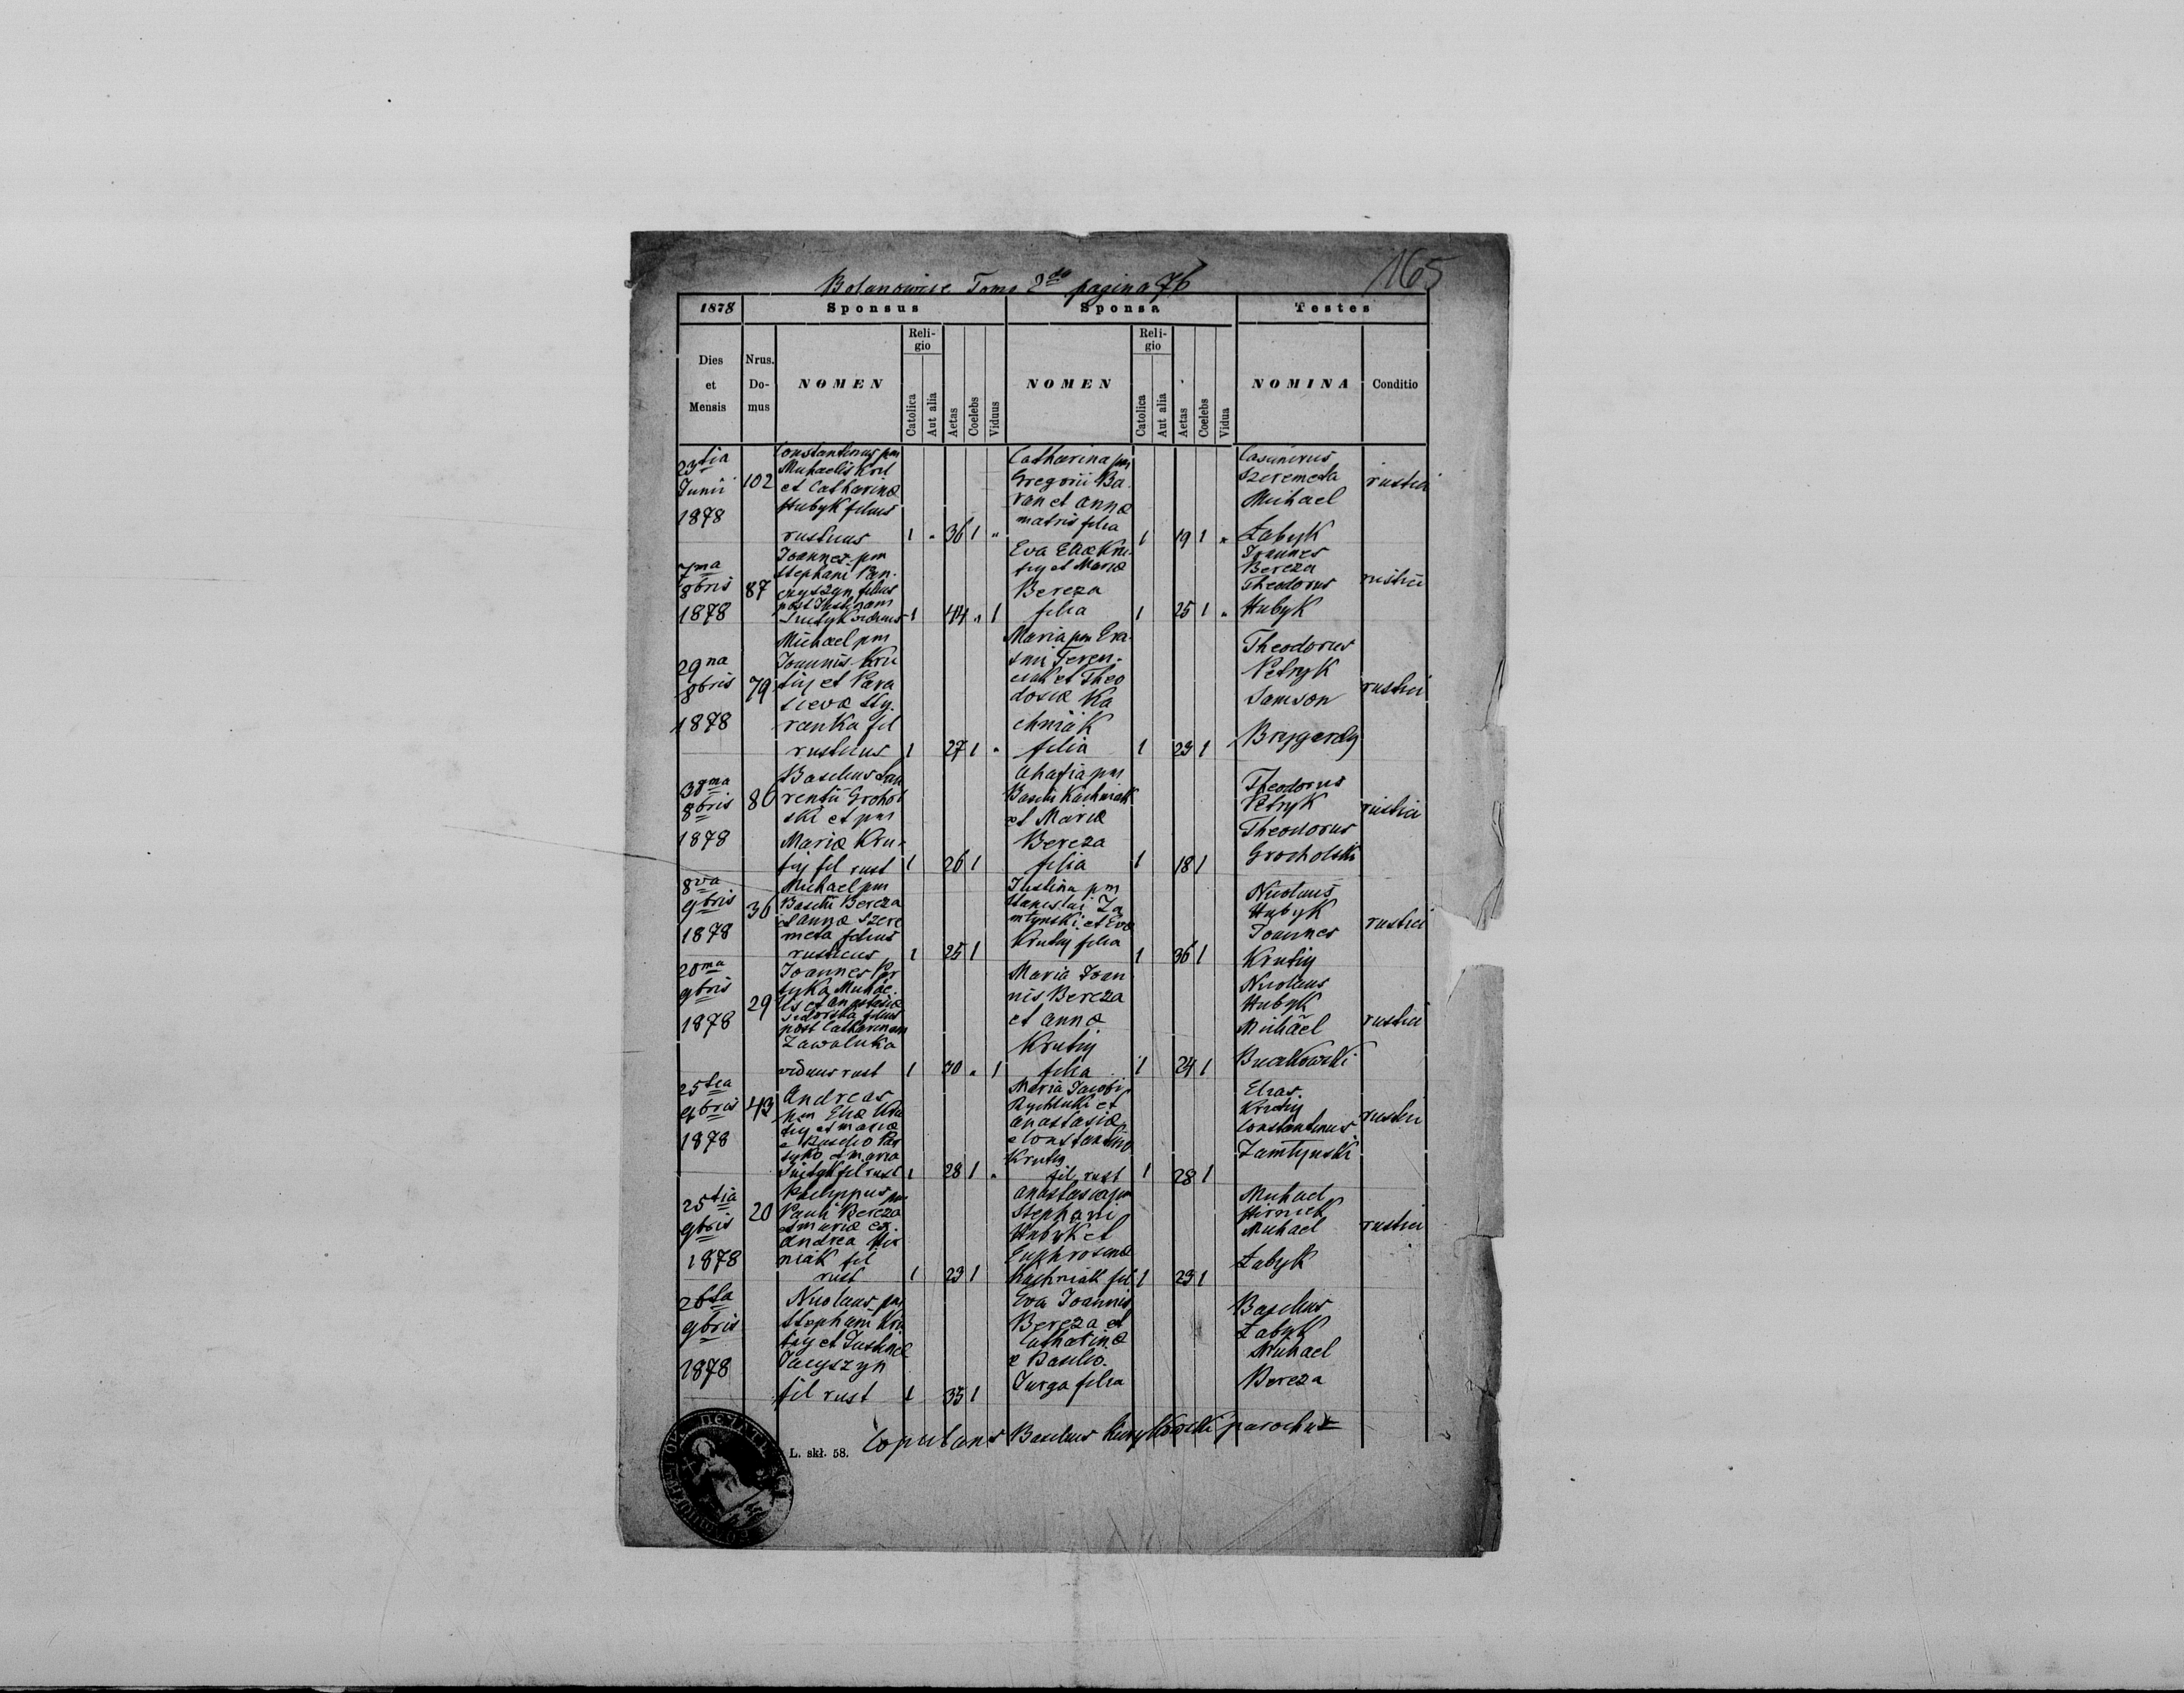 165
Bolanowice Tomo 2do pagina 76
1878 Sponsus Sponsa Testes
Dies et Mensis
Nrus. Domus
NOMEN
Religio
Catolica
Aut alia
Aetas
Coelebs
Viduus
NOMEN
Religio
Catolica
Aut alia
Aetas
Coelebs
Vidua
NOMINA
Conditio
23tia
Junii
1878
102
Constantinus pm
Michaelis Kril
et Catharinæ
Hubyk filius
rusticus
1 " 36 1 "
Catharina pm
Gregorii Ba
ran et Annæ
matris filia
1 19 1 "
Casimirus
Szeremeta
Michael
Łabyk
rustici
7ma
8bris
1878
87
Joannes pm
Stephani Pan
czyszyn filius
post Justinam
viduus
1 44 " 1
Eva Eliæ Kru
tiy et Mariæ
Bereza
filia
1 25 1 "
Joannes
Bereza
Theodorus
Hubyk
rustici
29na
8bris
1878
79
Michael pm
Joannis Kru
tiy et Para
scevæ Sty
ranka fil
rusticus
1 27 1 "
Maria pm Era
smi Feren
ciak et Theo
dosiæ Ka
chniak
filia
1 23 1
Theodorus
Petryk
Samson
Brygardy
rustici
8bris
1878
86
Basilius Lau
rentii Grohol
ski et pm
Mariæ Kru
tiy fil rust
1 26 1
Ahafia pm
Basilii Kachniak
et Mariæ
Bereza
filia
1 18 1
Theodorus
Petryk
Theodorus
Grocholski
rustici
8va
9bris
1878
36
Michael pm
Basilii Bereza
et Annæ Szere
meta filius
rusticus
1 25 1
Justina pm
Stanislai Za
mtynski et Evæ
Krutiy filia
1 36 1
Nicolaus
Hubyk
Joannes
Krutiy
rustici
20ma
9bris
1878
29
Joannes Pr
tyka Michae
lis et Anastasiæ
filius
post Catharinam
Zawaluka
viduus rust
1 30 " 1
Maria Joan
nis Bereza
et Annæ
Krutiy
filia
1 24 1
Nicolaus
Hubyk
Michael
Buczkowski
rustici
25tia
9bris
1878
43
Andreas
pm Eliæ Kru
tiy et Mariæ
e Basilio
et Maria
fil rust
1 28 1 "
Maria Jacobi
Rychlicki et
Anastasiæ
e Constantino
Krutiy
fil rust
1 28 1
Elias
Krutiy
Constantinus
Zamtynski
rustici
25tia
9bris
1878
20
Philippus pm
Pauli Bereza
et Mariæ ex
Andrea Hir
niak fil
rust
1 23 1
Anastasia pm
Stephani
Hubyk et
Euphrosinæ
Kachniak fil
1 23 1
Michael
Hirniak
Michael
Łabyk
rustici
26ta
9bris
1878
Nicolaus pm
Stephani Kru
tiy et Justinæ
Jacyszyn
fil rust
1 35 1
Eva Joannis
Bereza et
Catharinæ
e Basilio
Jurga filia
Basilius
Łabyk
Michael
Bereza
L. skł. 58.
Copulans Basilius parochus